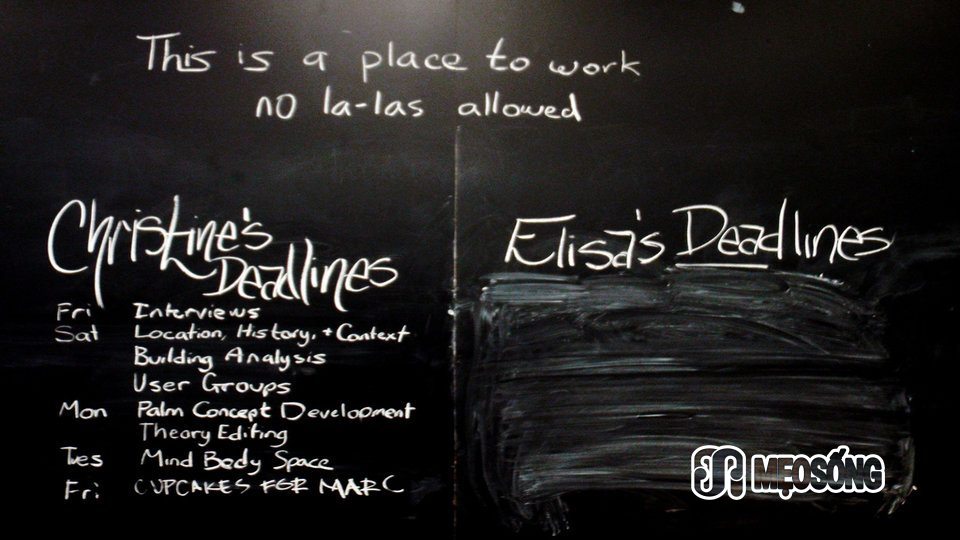 This is a place to work
no la-las allowed
Christine's
Deadlines
Fri Interviews
Sat Location, History, + Context
Building Analysis
User Groups
Mon Palm Concept Development
Theory Editing
Tues Mind Body Space
Fri CUPCAKES FOR MARC
Elisa's Deadlines
MẸOSỐNG